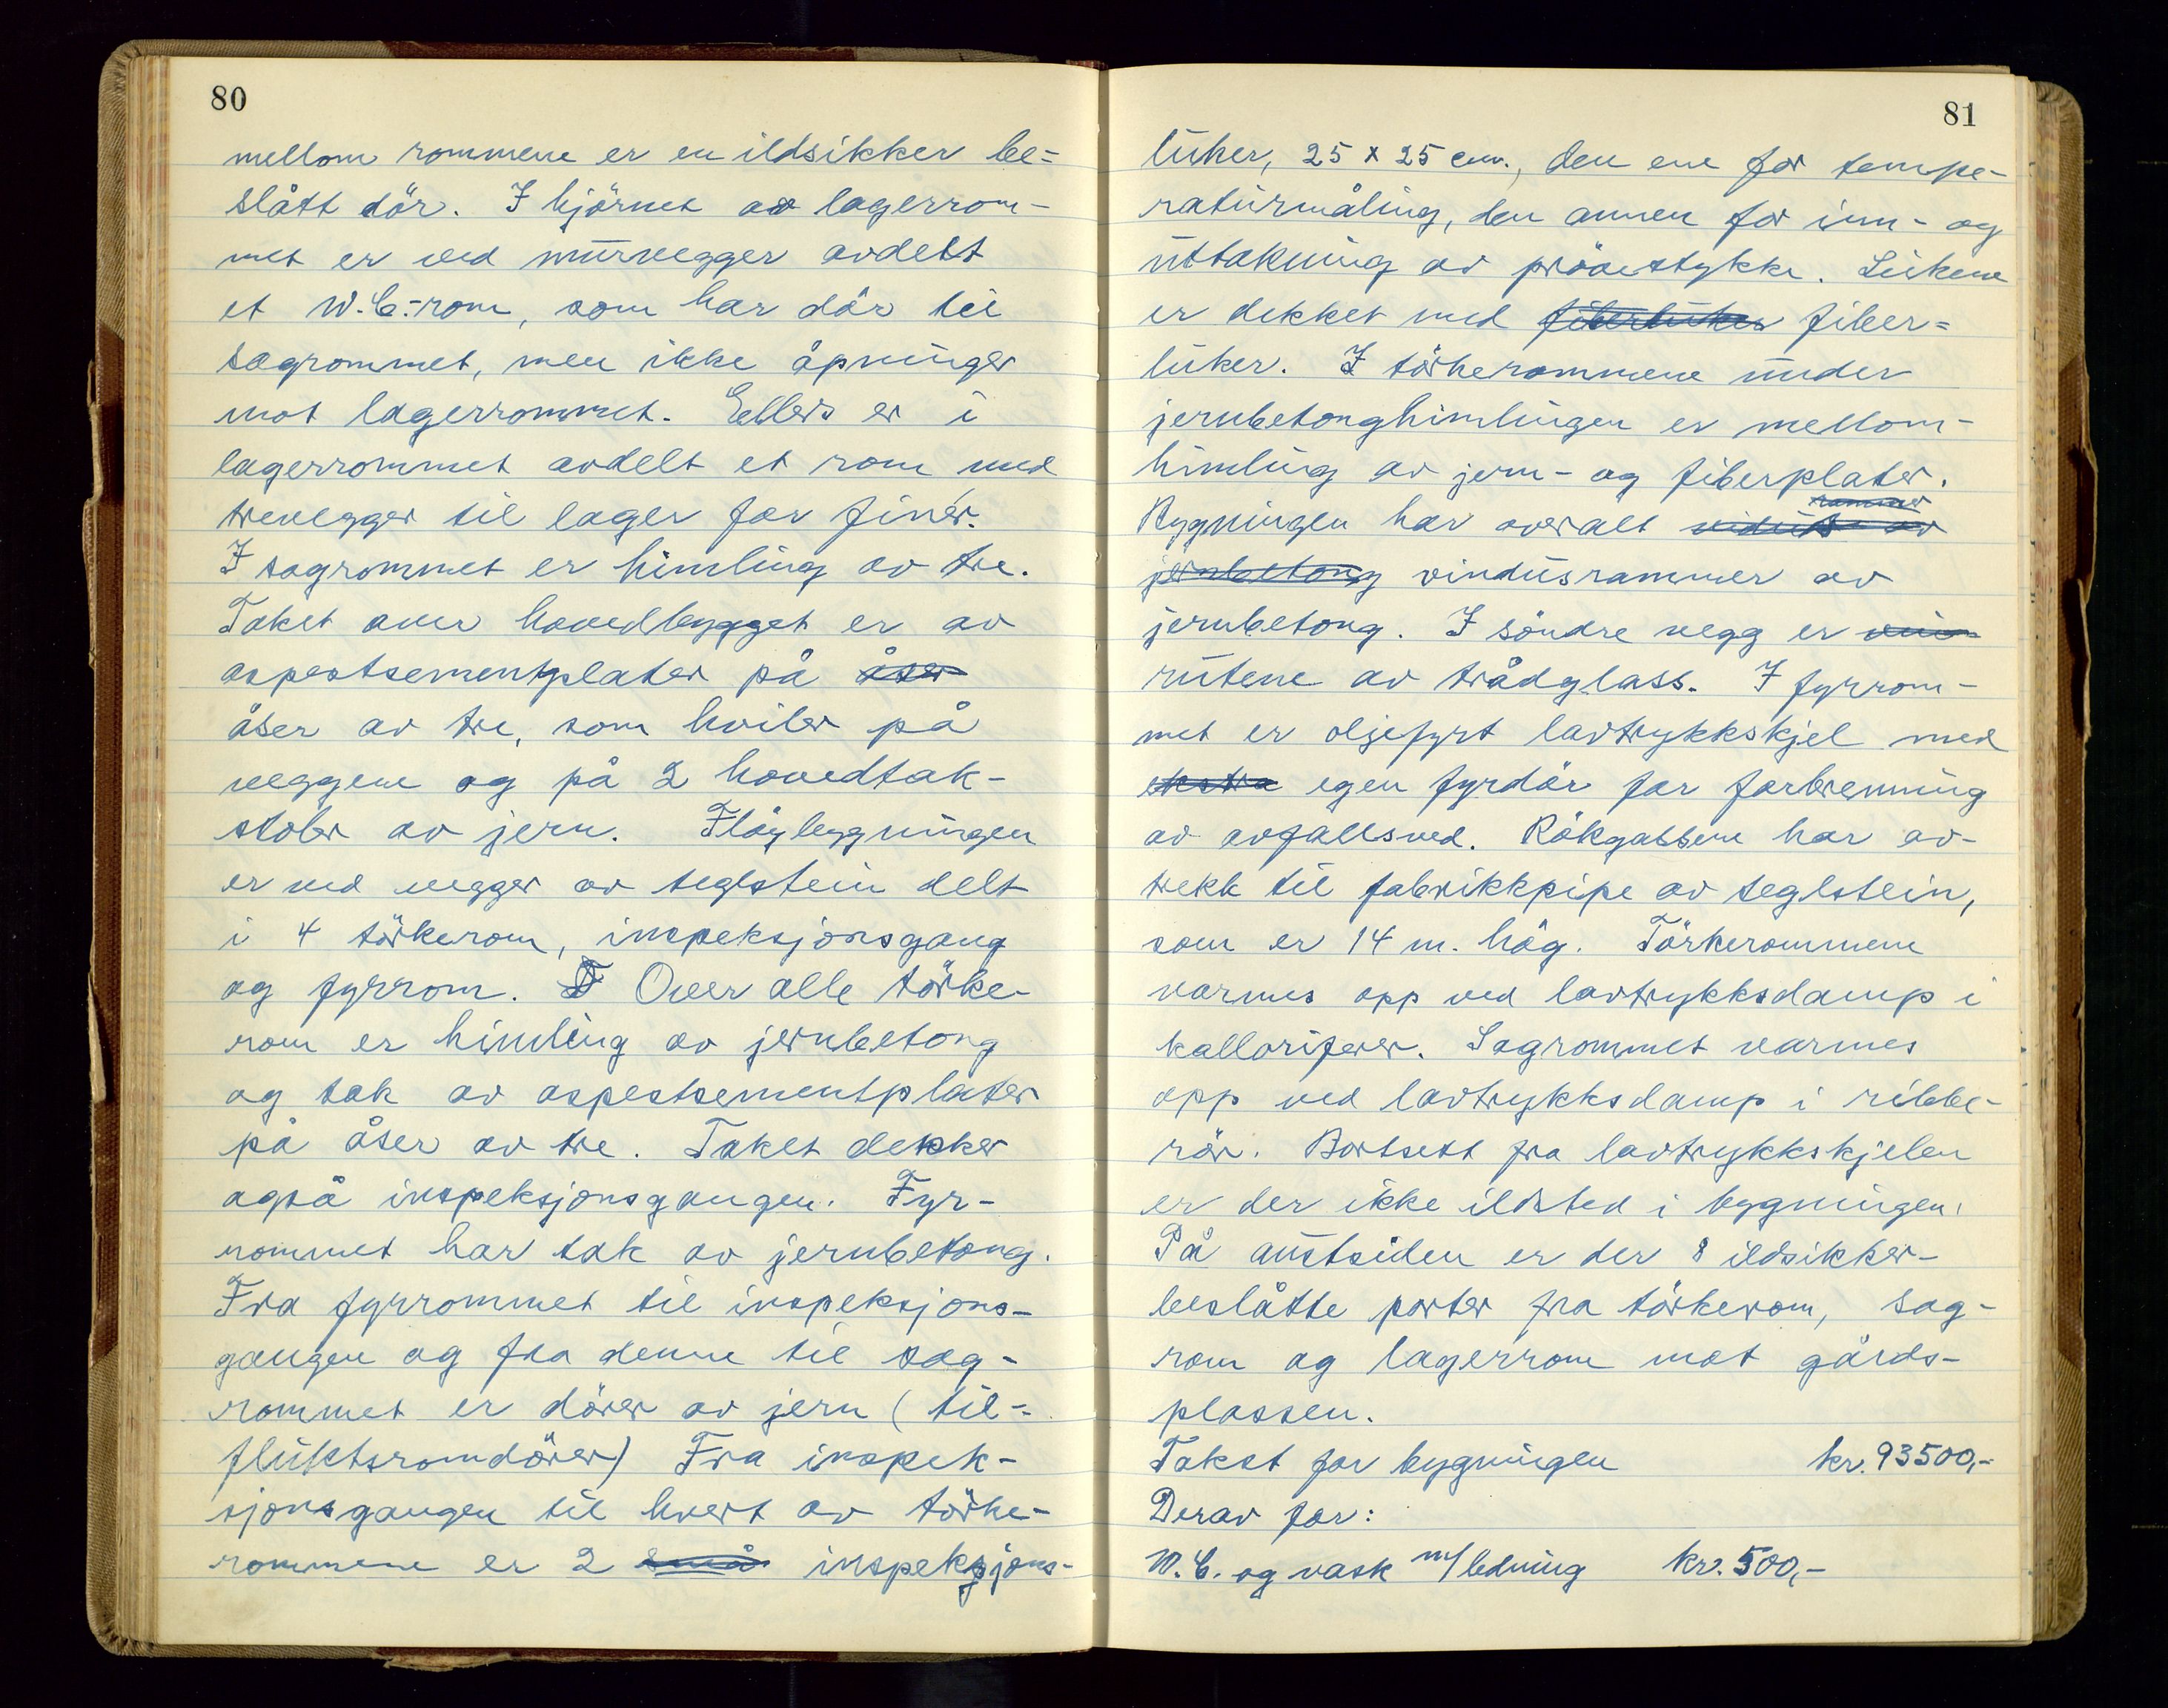 80
mellom rommene er en ildsikker be-
slått dör. I hjörnet av lagerrom-
met er ved murvegger avdelt
et W.C.-rom, som har dör til
sagrommet, men ikke åpninger
mot lagerrommet. Ellers er i
lagerrommet avdelt et rom med
trevegger til lager for finér.
I sagrommet er himling av tre.
Taket over hovedbygget er av
aspestsementplater på åser
åser av tre, som hviler på
veggene og på 2 hovedtak-
stoler av jern. Flöybygningen
er ved vegger av teglstein delt
i 4 törkerom, inspeksjonsgang
og fyrrom. Over alle törke-
rom er himling av jernbetong
og tak av aspestsementplater
på åser av tre. Taket dekker
også inspeksjonsgangen. Fyr-
rommet har tak av jernbetong.
Fra fyrrommet til inspeksjons-
gangen og fra denne til sag-
rommet er dörer av jern (til-
fluktsromdörer) Fra inspek-
sjonsgangen til hvert av törke-
rommene er 2 små inspeksjons-
81
luker, 25 x 25 cm., den ene for tempe-
raturmåling, den annen for inn- og
uttakning av prövestykke. Lukene
er dekket med fiberluker fiber-
luker. I törkerommene under
jernbetonghimlingen er mellom-
himling av jern- og fiberplater.
rammer
Bygningen har overalt vidus av
jernbetong vindusrammer av
jernbetong. I söndre vegg er vin
rutene av trådglass. I fyrrom-
met er oljefyrt lavtrykkskjel med
ekstra egen fyrdör for forbrenning
av avfallsved. Rökgassene har av-
trekk til fabrikkpipe av teglstein,
som er 14 m. hög. Törkerommene
varmes opp ved lavtrykksdamp i
kallorifever. Sagrommet varmes
opp ved lavtrykksdamp i ribbe-
rör. Bortsett fra lavtrykkskjelen
er der ikke ildsted i bygningen.
På austsiden er der 8 ildsikker-
beslåtte porter fra törkerom, sag-
rom og lagerrom mot gårds-
plassen.
Takst for bygningen kr. 93500,-
Derav for:
W.C. og vask m/ledning kr. 500,-